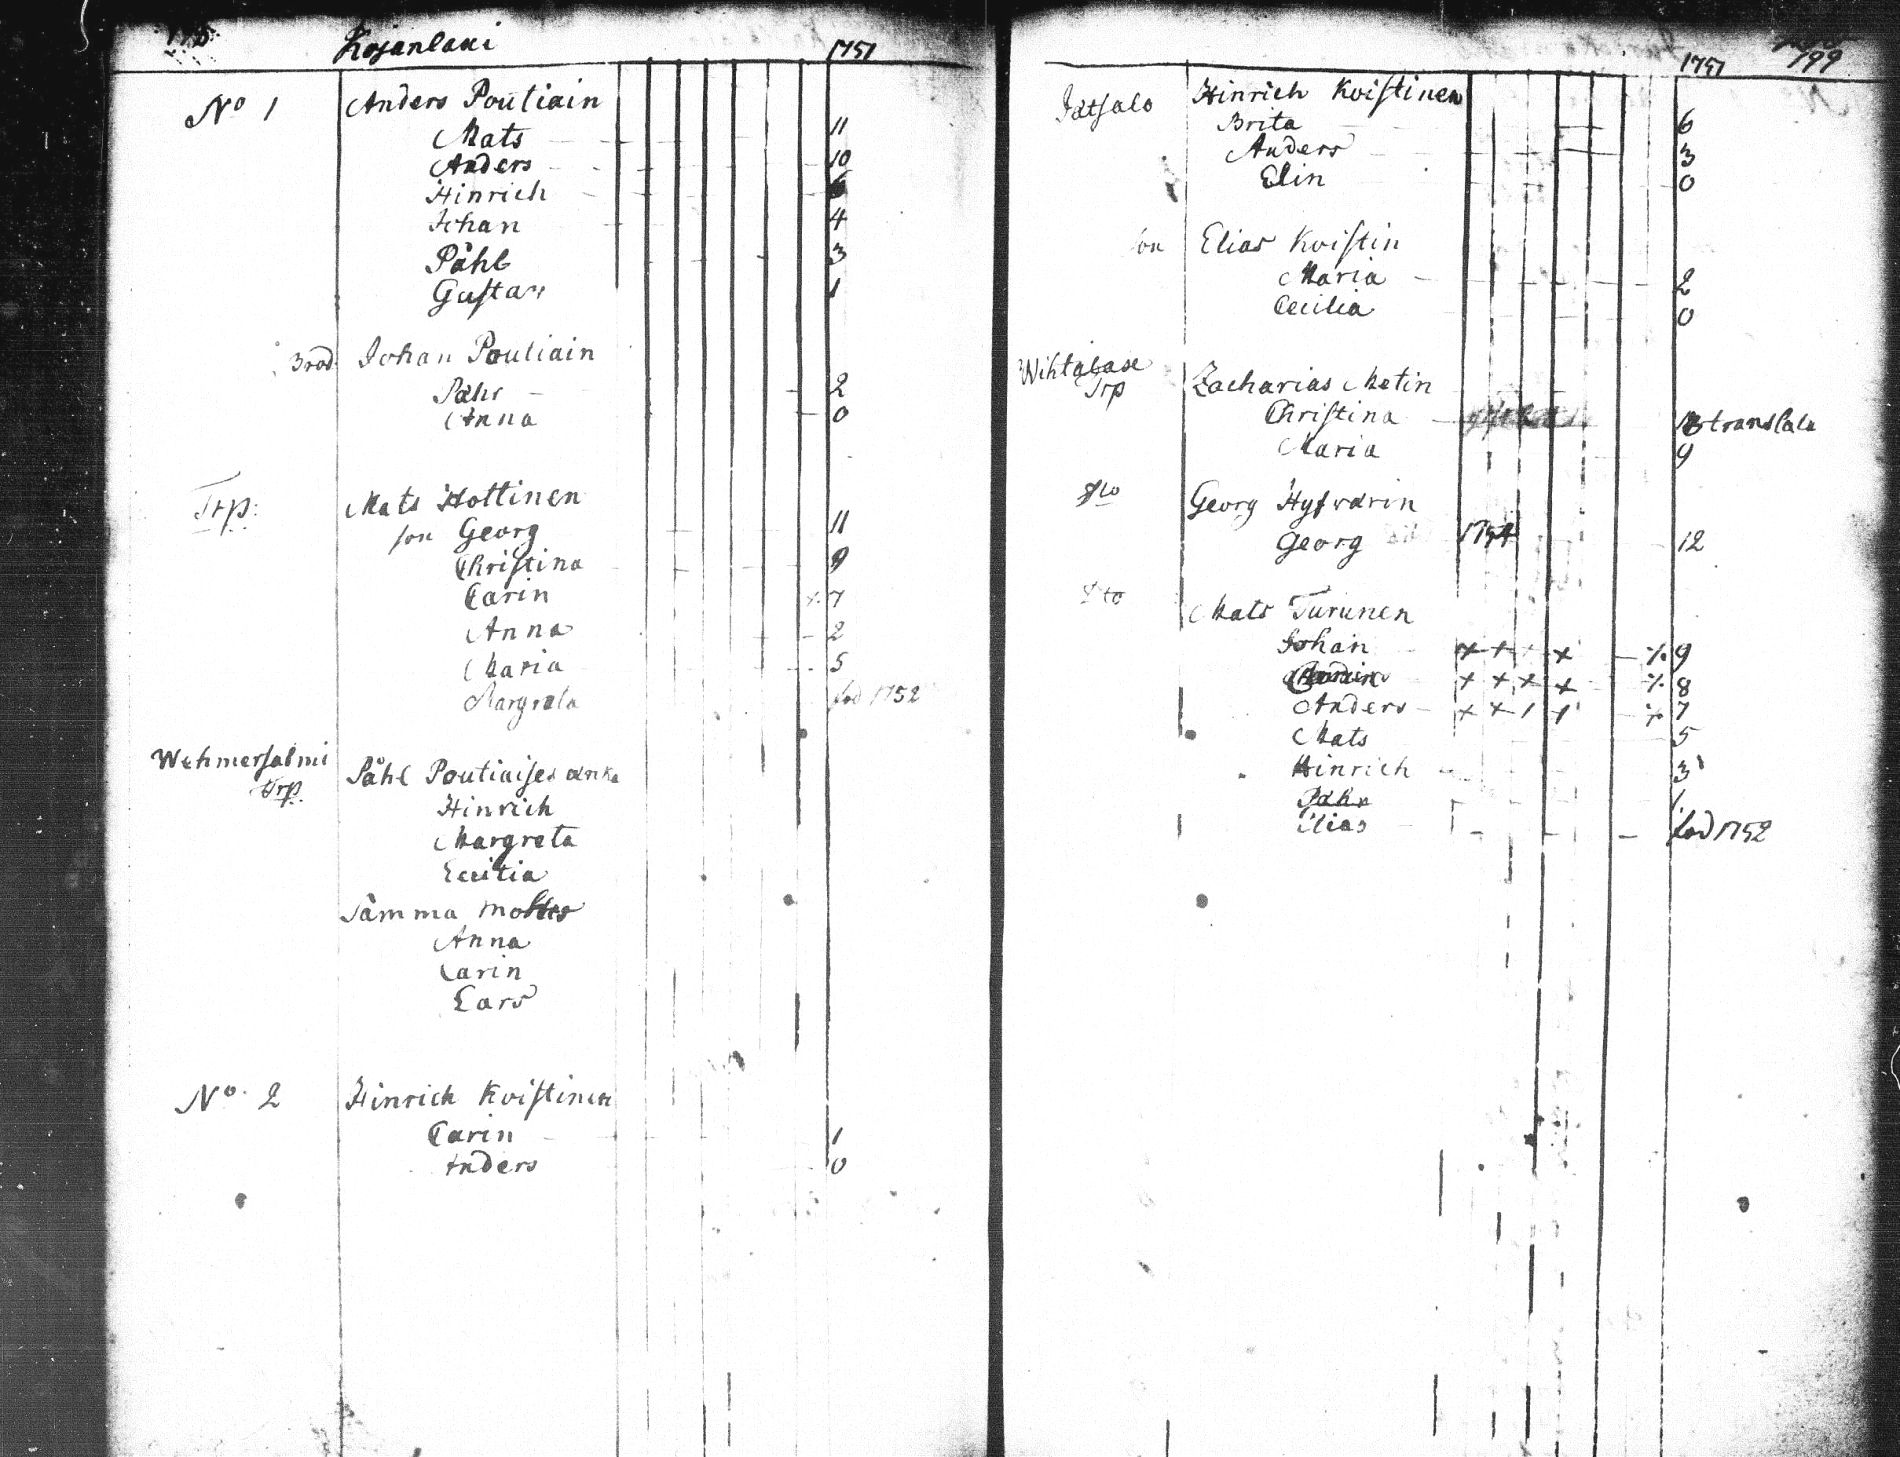 Kojanlaxi 1751
No 1 Anders Poutiain
Mats 11
Anders 10
Hinrich 6
Johan 4
Påhl 3
Gustav 1
Brod Johan Poutiain
Pähr 2
Anna 0
Trp: Mats Hottinen
son Georg 11
Christina 9
Carin % 7
Anna 2
Maria 5
Margreta fod 1752
Wehmersalmi Påhl Poutiaises änka
Trp.
Hinrich
Margreta
Cecilia
Samma
Anna
Carin
Lars
No. 2 Hinrich Koistinen
Carin 1
Anders 0
1751 199
Jätsalo Hinrich Koistinen
Brita 6
Anders 3
Elin 0
son Elias Koistin
Maria 2
Cecilia 0
Zacharias Metin
Trp
Christina
Maria 9
Georg Hyfvärin
Georg 1754 12
Dto Mats Turunen
Johan + + + + % 9
+ + + + % 8
Anders + + + + % 7
Mats 5
Hinrich 3
Pähr 1
Elias fod 1752